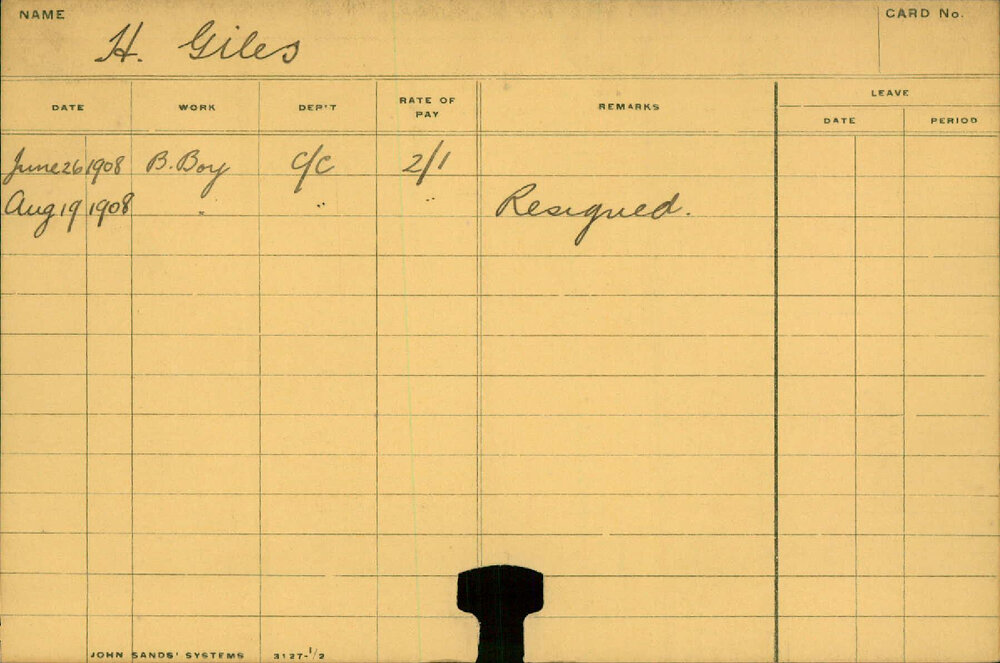 NAME
H. Giles
CARD No.
DATE WORK DEP'T RATE OF PAY REMARKS LEAVE
DATE PERIOD
June 26 1908 B. Boy C/C 2/1
Aug 19 1908 " " " Resigned.
JOHN SANDS' SYSTEMS 3127-1/2